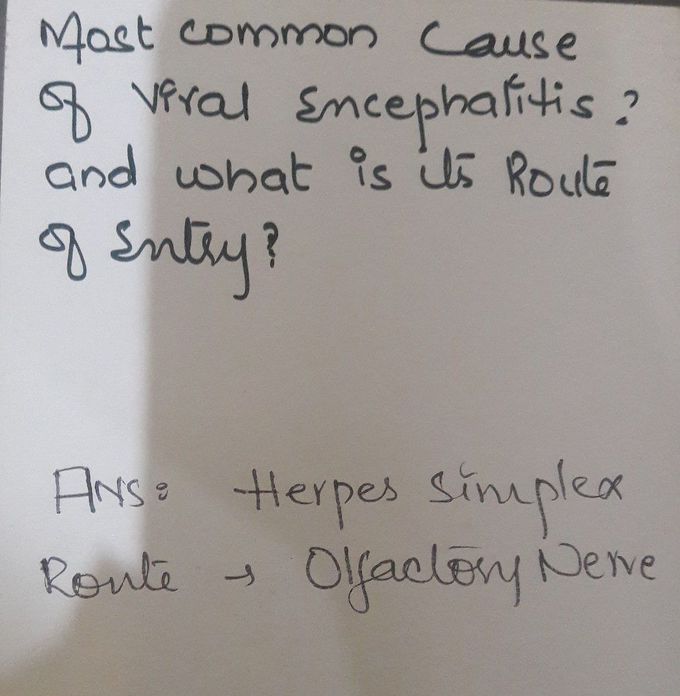 Most common Cause
of Viral Encephalitis?
and what is its Route
of Entry?
ANS: Herpes Simplex
Route → Olfactory Nerve